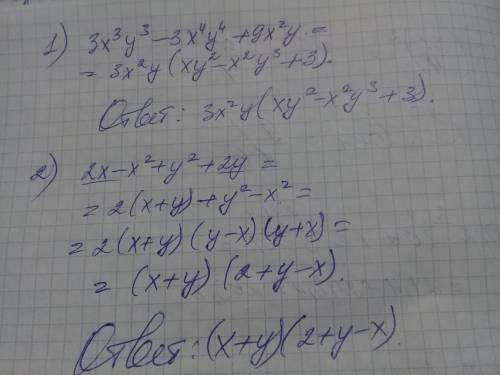 1) 3x³y³ - 3x⁴y⁴ + 9x²y =
= 3x²y (xy² - x²y³ + 3).
Ответ: 3x²y (xy² - x²y³ + 3).
2) 2x - x² + y² + 2y =
= 2(x+y) + y² - x² =
= 2(x+y) (y-x) (y+x) =
= (x+y) (2+y-x).
Ответ: (x+y)(2+y-x).